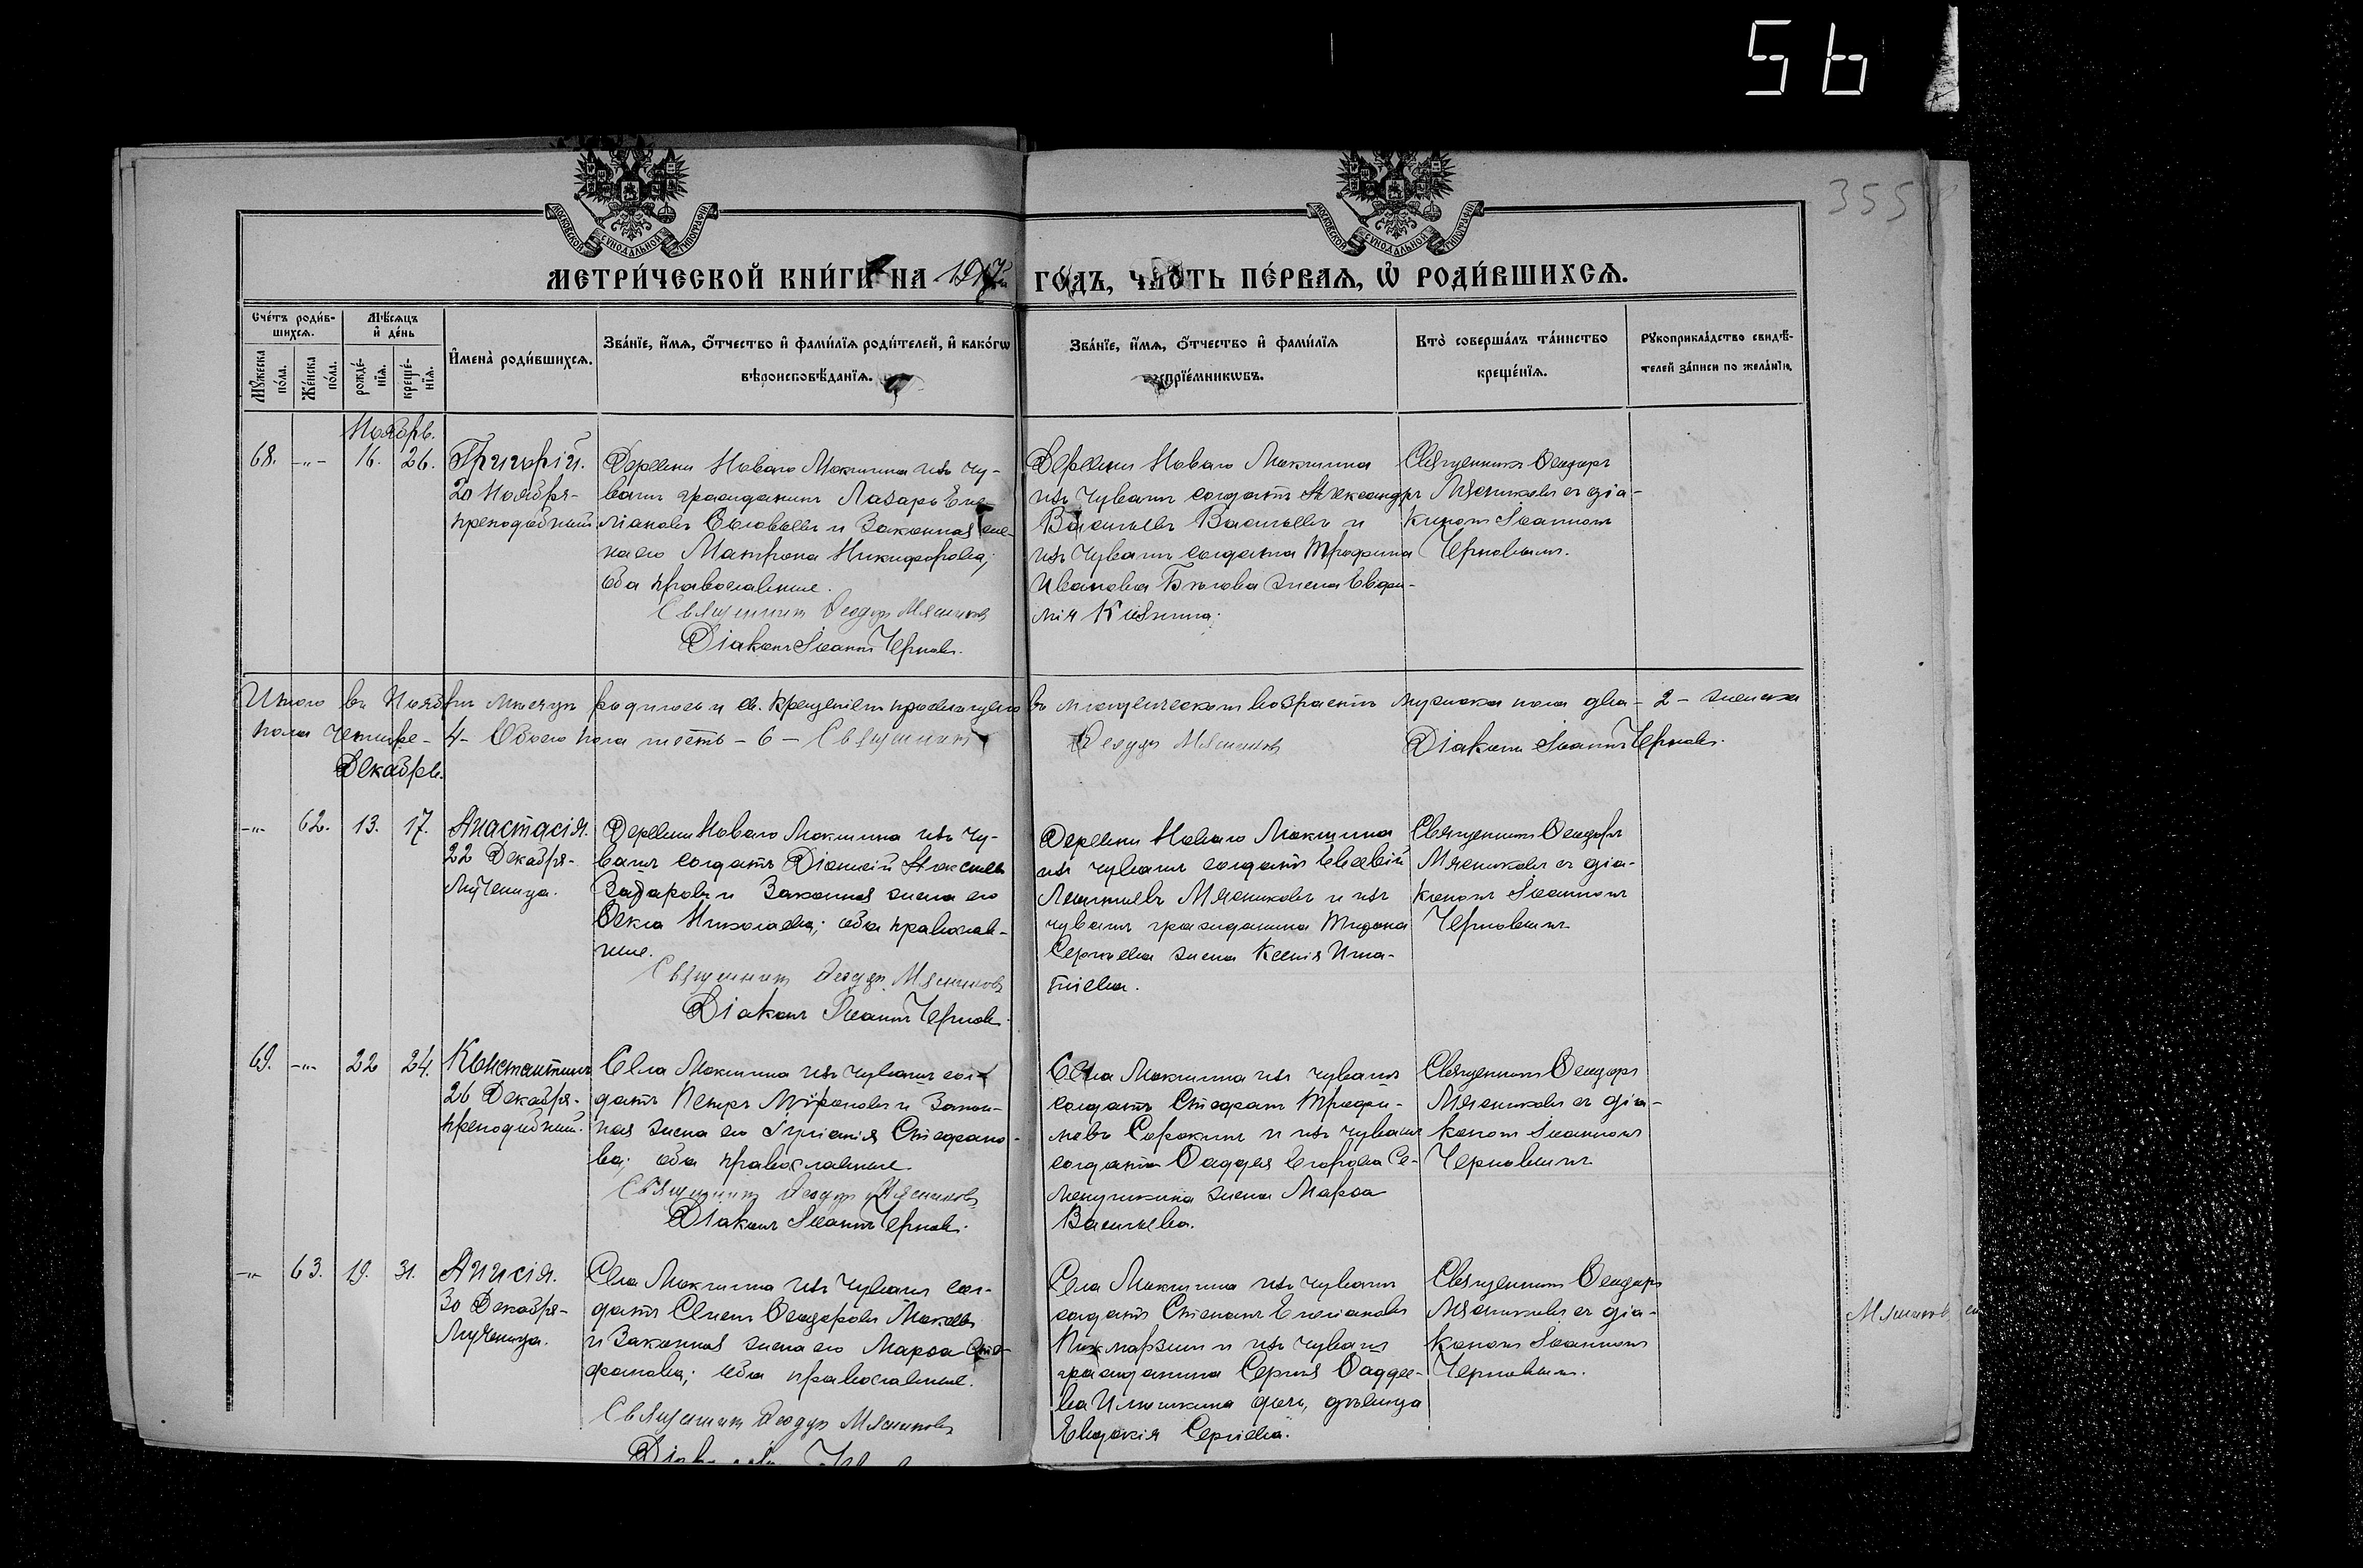 56
355
МОСКОВСКОЙ СѴНОДАЛЬНОЙ ТИПОГРАФІИ
МОСКОВСКОЙ СѴНОДАЛЬНОЙ ТИПОГРАФІИ
МЕТРИ́ЧЕСКОЙ КНИ́ГИ НА 1917 ГО́ДЪ, ЧА́СТЬ ПЕ́РВАЯ, Ѡ҆ РОДИ́ВШИХСѦ.
Сче́тъ роди́в-
шихсѧ.
Мѣ́сѧцъ
и҆ де́нь
Мꙋ́жеска
по́ла.
Же́нска
по́ла.
рожде́-
нїѧ.
креще́-
нїѧ.
И҆мена̀ роди́вшихсѧ.
Зва́нїе, и҆́мѧ, ѻ҆́тчество и҆ фами́лїѧ роди́телей, и҆ како́гѡ
вѣроисповѣ́данїѧ.
Зва́нїе, и҆́мѧ, ѻ҆́тчество и҆ фами́лїѧ
воспрїе́мникѡвъ.
Кто̀ соверша́лъ та́инство
креще́нїѧ.
Рꙋкоприкла́дство свидѣ́-
телей за́писи по жела́нїю.
Ноябрь.
68. -"- 16. 26.
Григорій.
20 Ноября-
преподобный
Деревни Новаго Мокшина изъ чу-
вашъ гражданинъ Лазарь Еме-
ліановъ Соловьевъ и законная же-
на его Матрона Никифорова;
оба православные.
Священникъ Ѳеодоръ Мясниковъ
Діаконъ Іоаннъ Черновъ.
Деревни Новаго Мокшина
изъ чувашъ солдатъ Александръ
Васильевъ Васильевъ и
изъ чувашъ солдата Трофима
Иванова Бѣлова жена Евфи-
мія Кузмина.
Священникъ Ѳеодоръ
Мясниковъ съ діа-
кономъ Іоанномъ
Черновымъ.
Итого въ Ноябрѣ мѣсяцѣ родилось и св. крещеніемъ просвѣщено въ младенческомъ возрастѣ мужска пола два - 2 - женска
пола четыре - 4 - Обоего пола шесть - 6 - Священникъ Ѳеодоръ Мясниковъ Діаконъ Іоаннъ Черновъ.
Декабрь.
-"- 62. 13. 17.
Анастасія.
22 Декабря-
мученица.
Деревни Новаго Мокшина изъ чу-
вашъ солдатъ Діонисій Алексѣевъ
Захаровъ и законная жена его
Ѳекла Николаева; оба православ-
ные.
Священникъ Ѳеодоръ Мясниковъ
Діаконъ Іоаннъ Черновъ.
Деревни Новаго Мокшина
изъ чувашъ солдатъ Евсевій
Леонтьевъ Мясниковъ и изъ
чувашъ гражданина Тихона
Сергѣева жена Ксенія Игна-
тіева.
Священникъ Ѳеодоръ
Мясниковъ съ діа-
кономъ Іоанномъ
Черновымъ
69. -"- 22 24.
Константинъ
26 Декабря-
преподобный.
Села Мокшина изъ чувашъ сол-
датъ Петръ Мѵроновъ и закон-
ная жена его Іуліанія Стефано-
ва; оба православные.
Священникъ Ѳеодоръ Мясниковъ
Діаконъ Іоаннъ Черновъ.
Села Мокшина изъ чувашъ
солдатъ Стефанъ Трофи-
мовъ Сорокинъ и изъ чувашъ
солдата Ѳаддея Егорова Се-
жена Марѳа
Васильева.
Священникъ Ѳеодоръ
Мясниковъ съ діа-
кономъ Іоанномъ
Черновымъ
-"- 63. 19. 31.
Анисія.
30 Декабря-
Мученица.
Села Мокшина изъ чувашъ сол-
датъ Семенъ Ѳеодоровъ Мокеевъ
и законная жена его Марѳа Сте-
фанова; оба православные.
Священникъ Ѳеодоръ Мясниковъ
Села Мокшина изъ чувашъ
солдатъ Степанъ Емеліановъ
и изъ чувашъ
гражданина Сергія Ѳаддее-
ва Илюшкина дочь, дѣвица
Евдокія Сергіева.
Священникъ Ѳеодоръ
Мясниковъ съ діа-
кономъ Іоанномъ
Черновымъ.
Мясниковъ